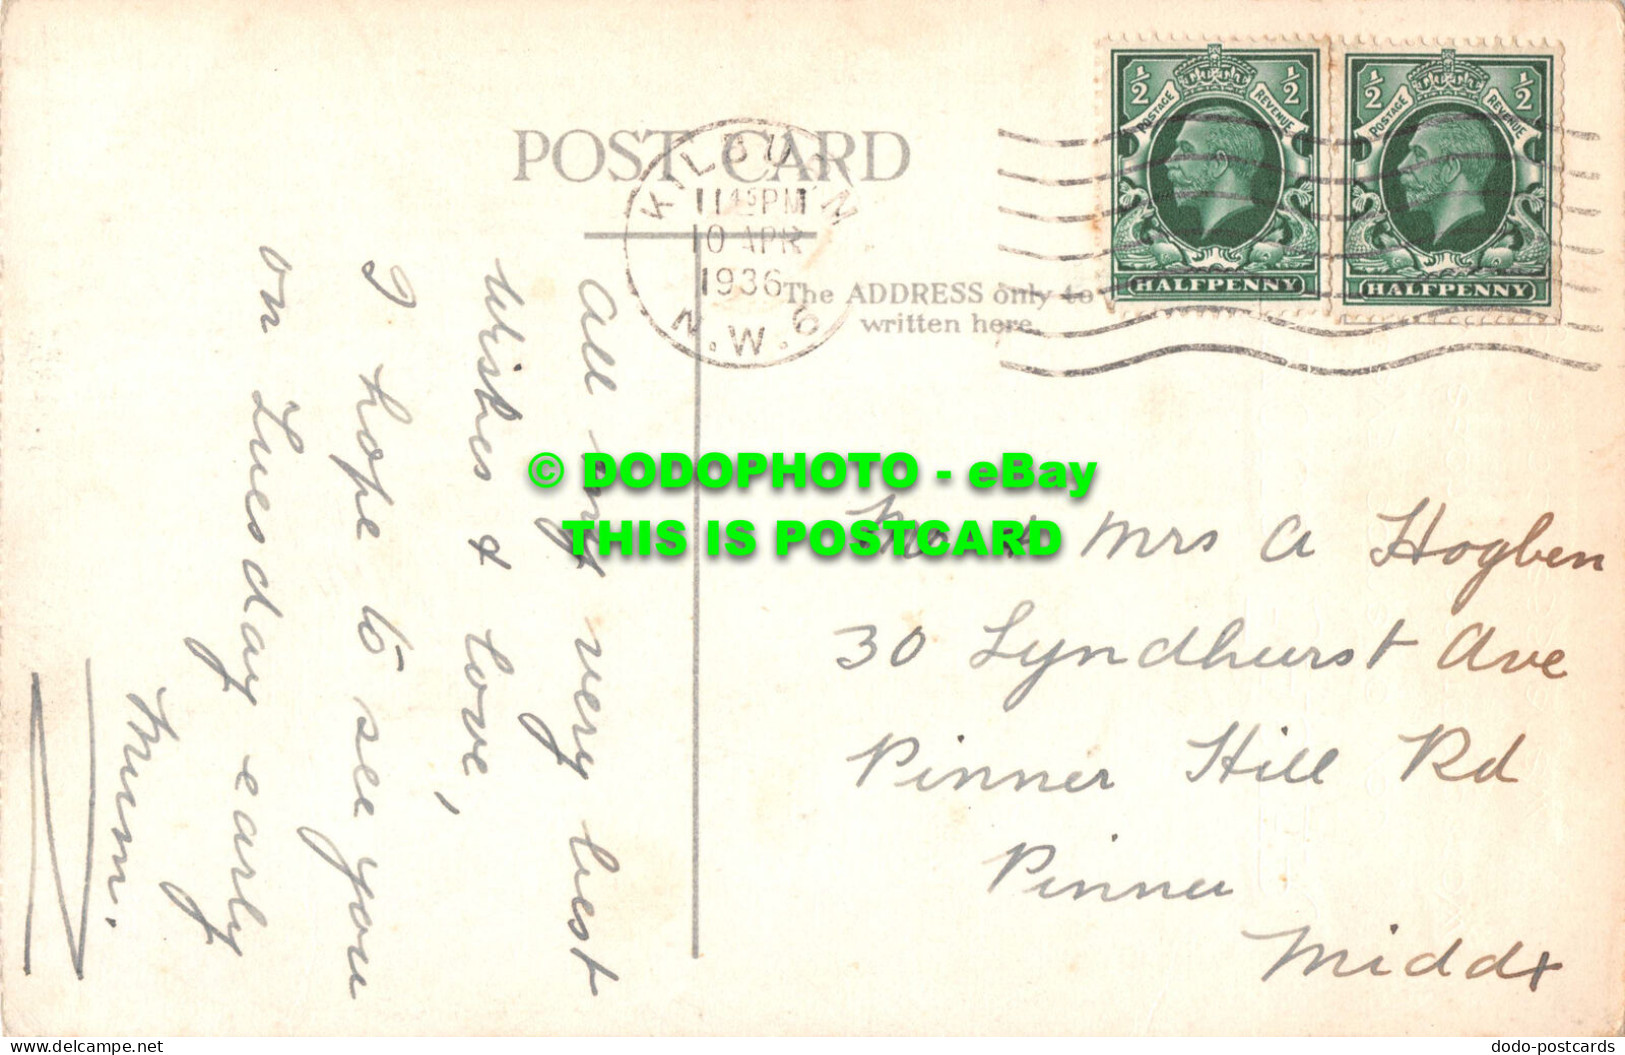 POST CARD
KILBURN
11 45 PM
10 APR
1936
N.W.6
The ADDRESS only to
written here
½ ½
POSTAGE REVENUE
HALFPENNY
½ ½
POSTAGE REVENUE
HALFPENNY
All my very best
wishes & love,
I hope to see you
on Tuesday early
Mum.
© DODOPHOTO - eBay
THIS IS POSTCARD
Mr & Mrs A Hogben
30 Lyndhurst Ave
Pinner Hill Rd
Pinner
Middx
www.delcampe.net
dodo-postcards